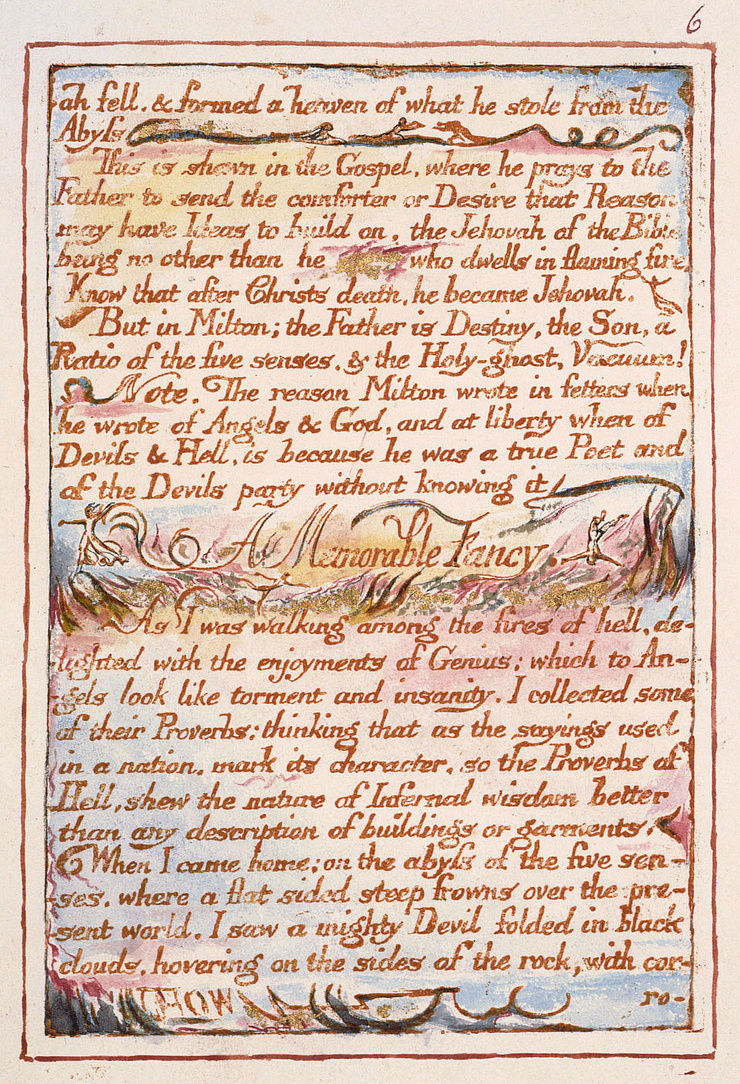 6
ah fell. & formed a heaven of what he stole from the
Abyſs
This is shewn in the Gospel, where he prays to the
Father to send the comforter or Desire that Reason
may have Ideas to build on, the Jehovah of the Bible
being no other than he who dwells in flaming fire.
Know that after Christs death, he became Jehovah.
But in Milton; the Father is Destiny, the Son, a
Ratio of the five senses. & the Holy-ghost, Vacuum!
Note. The reason Milton wrote in fetters when
he wrote of Angels & God, and at liberty when of
Devils & Hell, is because he was a true Poet and
of the Devils party without knowing it
A Memorable Fancy.
As I was walking among the fires of hell, de-
lighted with the enjoyments of Genius; which to An-
gels look like torment and insanity. I collected some
of their Proverbs: thinking that as the sayings used
in a nation, mark its character, so the Proverbs of
Hell, shew the nature of Infernal wisdom better
than any description of buildings or garments.
When I came home; on the abyſs of the five sen-
ses, where a flat sided steep frowns over the pre-
sent world. I saw a mighty Devil folded in black
clouds, hovering on the sides of the rock, with cor-
ro-